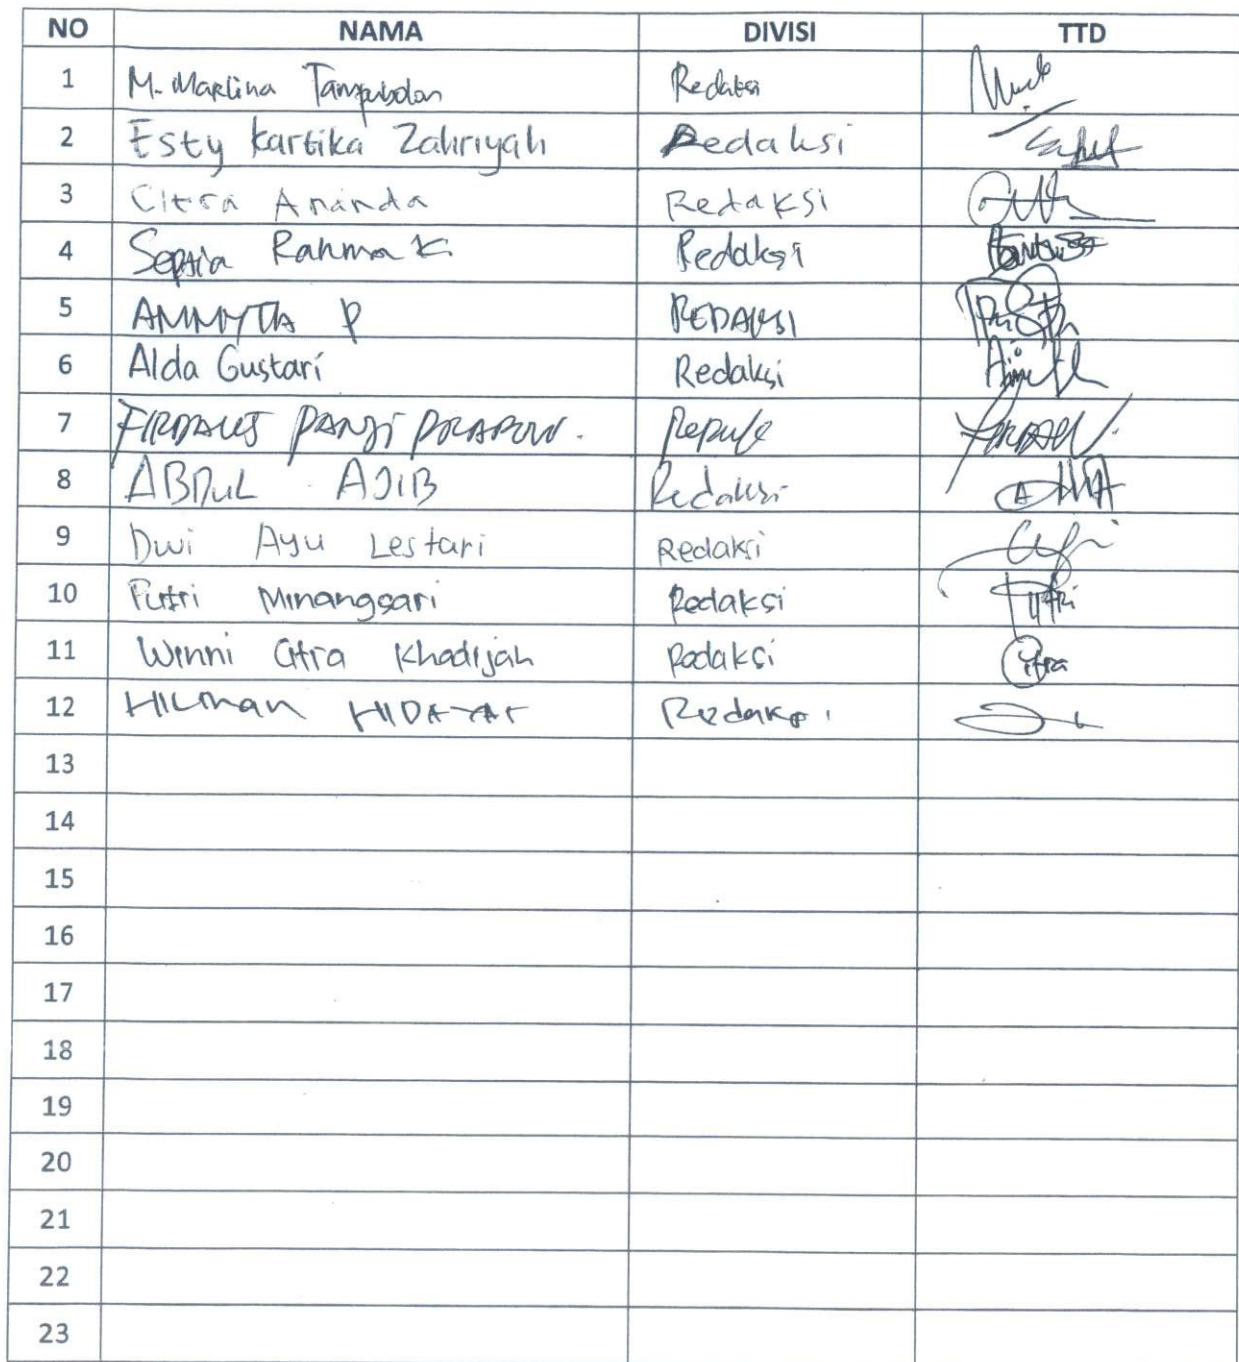 NO NAMA DIVISI TTD
1 M. Marlina Tampubolon Redaksi
2 Esty Kartika Zahriyah Redaksi
3 Citra Ananda Redaksi
4 Septia Rahma K Redaksi
5 P REDAKSI
6 Alda Gustari Redaksi
7 FIRDAUS PANJI
8 ABDUL AJIB Redaksi
9 Dwi Ayu Lestari Redaksi
10 Putri Minangsari Redaksi Putri
11 Winni Citra Khadijah Redaksi Citra
12 HILMAN HIDAYAT Redaksi
13
14
15
16
17
18
19
20
21
22
23